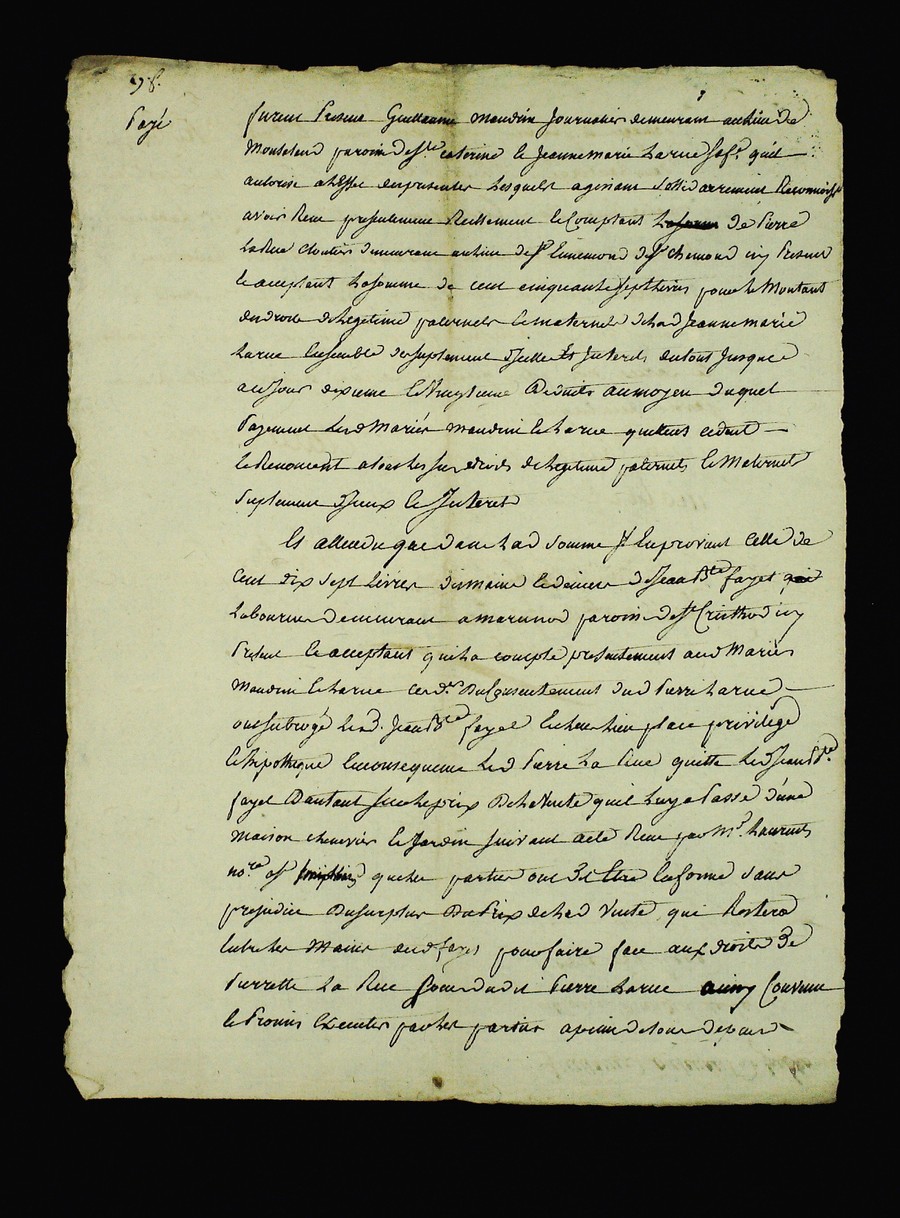 98.
Payé
furent Presens Guillaume maudrin Journalier demeurant au lieu de
Montelend paroisse de Ste. caterine et Jeanne Marie Larue sa fe. quil
autorise a leffet des presentes Lesquels agissant Sollidairement Reconnoisse
avoir Recu presentement Reellement et Comptant de Pierre
LaRue cloutier demeurant au lieu de St Ennemond de St chemond icy Present
et acceptant la somme de cent cinquante sept livres pour le Montant
des droits de legitime paternels et maternels de lad Jeanne marie
Larue Ensemble des suplement dicelle et Interets du tout Jusque a
ce Jour dixieme et vingtieme Deduits au moyen duquel
Payement Lesd Mariés maudrin et Larue quittent cedent
et Renoncent a tous les sus droits de legitime paternels et Maternels
suplement diceux et Interets
Et attendu que dans lad somme il En provient Celle de
Cent dix sept Livres des mains et deniers de Jean Bte fayet
Laboureur demeurant a paroisse de St Cristho icy
Present et acceptant qui la compté presentement aux d Mariés
Maudrin et Larue Ces d.ers du Consentement dud Pierre Larue
ont subrogé led. Jean Bte fayet en leur lieu place privilege
et hipotheque En consequence Led Pierre La Rue quitte Led Jean Bte.
fayet Dautant sur le prix de la vente quil luy a Passé d'une
maison chenevier et Jardin suivant acte Recu par Me. Laurent
no.re que les parties ont dit Etre En forme sans
prejudice du surplus du Prix de lad vente qui Restera
Entre les Mains dud fayet pour faire face aux droits de
Pierrette La Rue Soeur dudit Pierre Larue ainsy Convenu
et Promis Executer par les parties a peine de tous depens